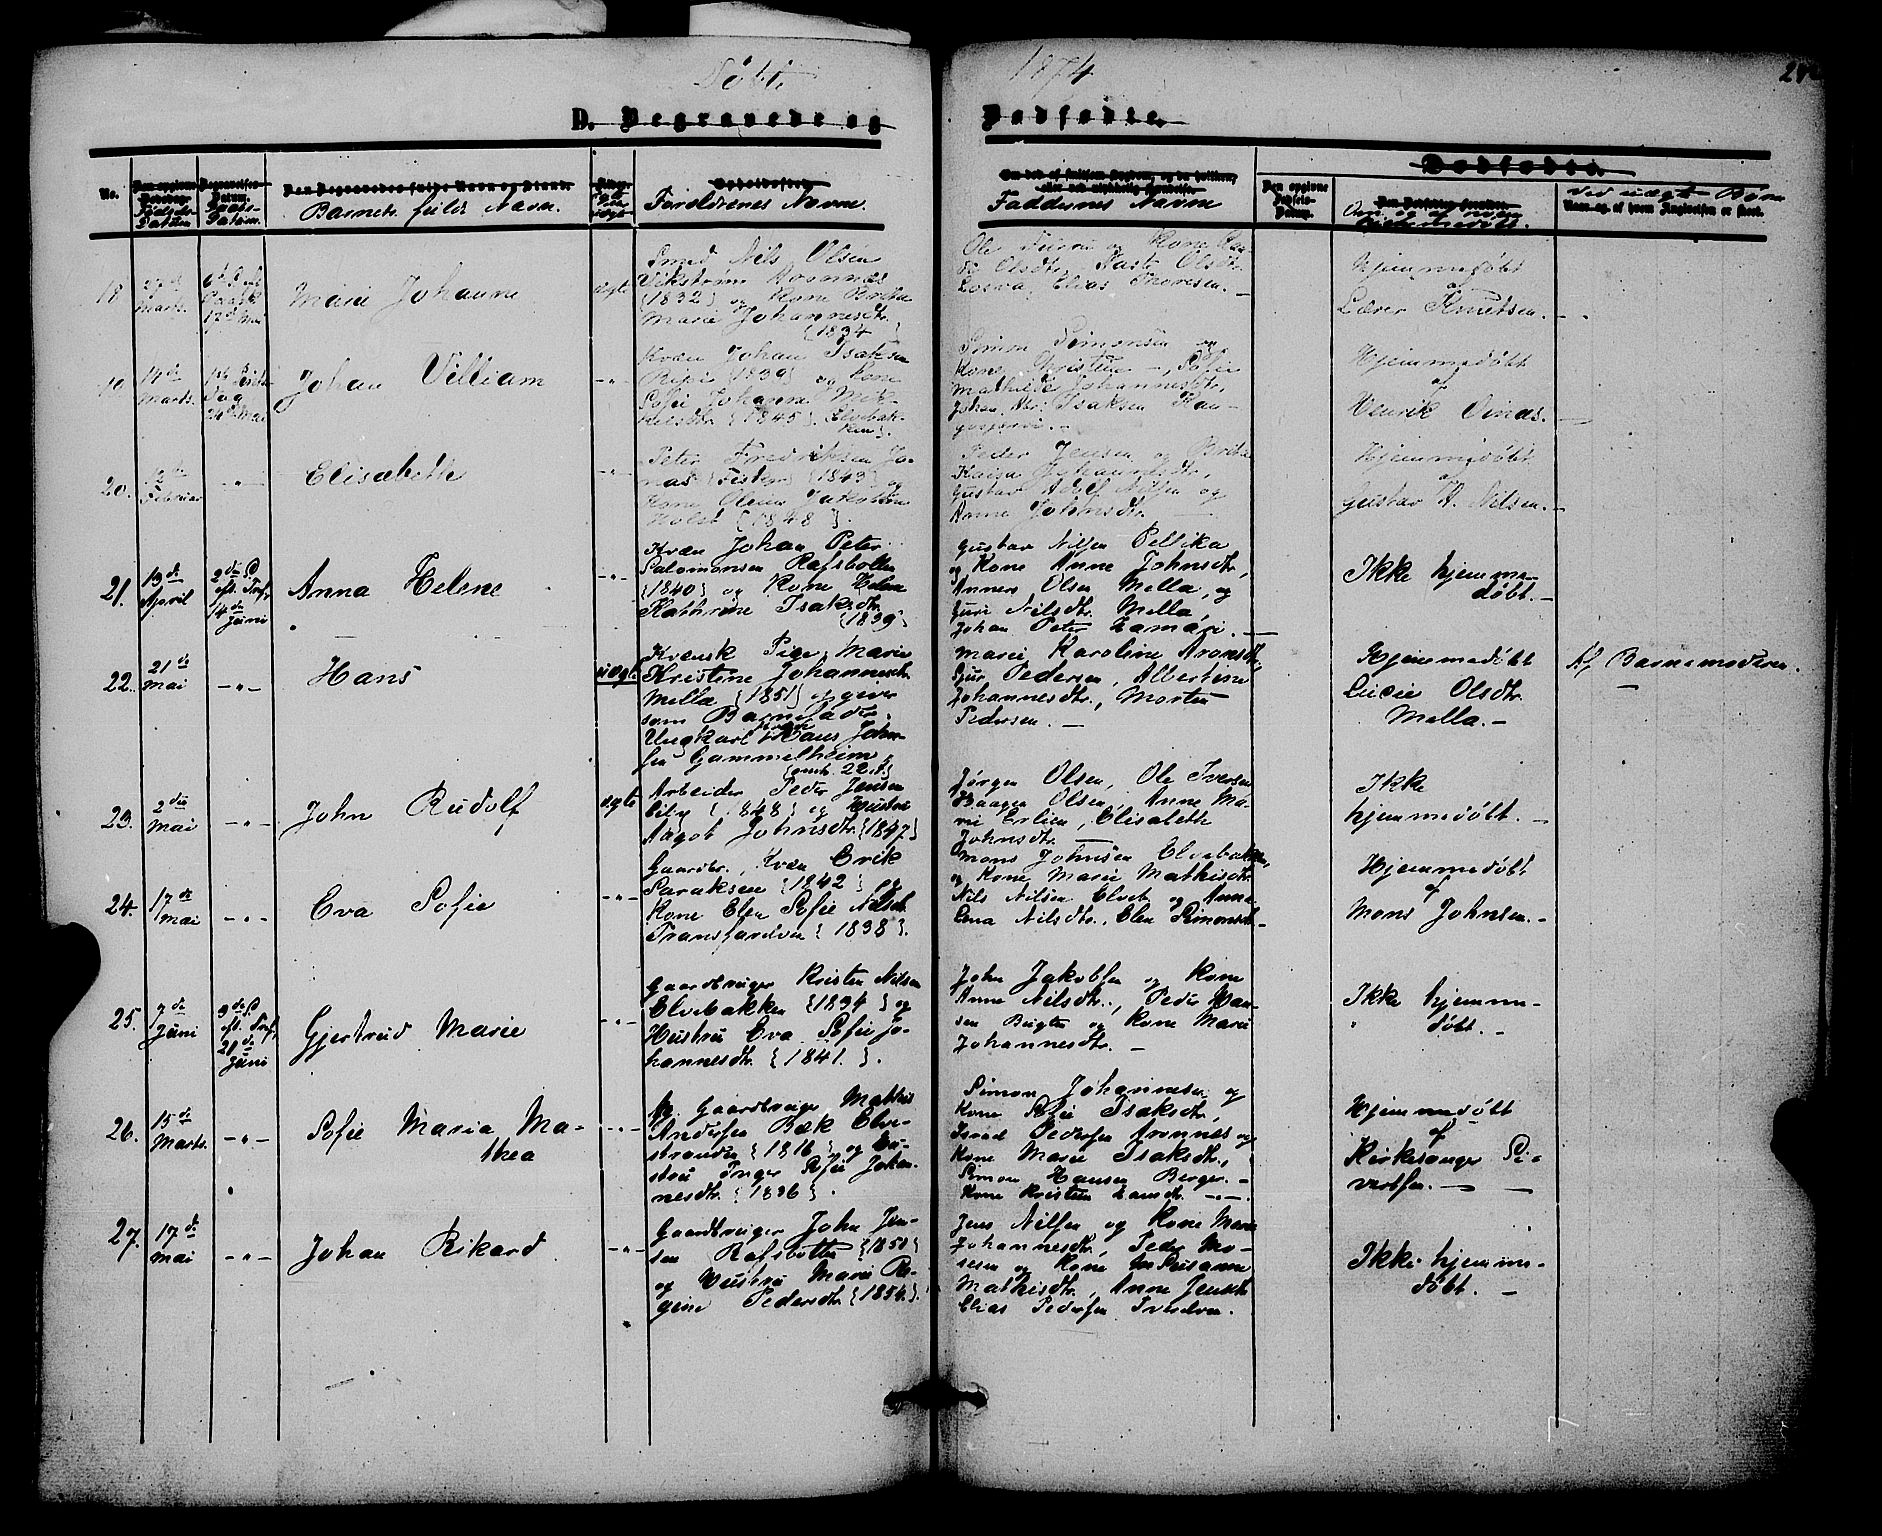 Døbte 1874
D. Begravede og Dødfødte.
No.
Fødsels-Datum
Daabs-Datum.
Barnets fulde Navn.
Forældrenes Navne.
Faddernes Navne
Dødfødte.
Om og af hvem hjemmedøbt.
Ved uægte Børn
18.
27de Marts.
17de Mai
Marie Johanne
ægte
Smed Nils Olsen
Vikstrøm
{1832} og Kone Brita
Marie Johannesdtr.
{1834}
Ole og Kone
Olsdtr.
Elias Thoresen. -
Hjemmedøbt
af
Lærer Knudsen. -
19.
14de Marts.
1ste Pintse Dag
24de Mai
Johan Villiam
- " -
Kvæn Johan Isaksen
{1839} og Kone
Sofie Johanne Mik-
kelsdtr. {1845}. Elvebak-
ken}.
Simon Simonsen og
Kone Kristine -, Sofie
Mathilde Johannesdtr,
Johan Isaksen
Hjemmedøbt
af
Henrik
20.
Februar
- " -
Elisabeth
- " -
Peter Fredriksen Jo-
nas {1843} og
Kone
Holst {1848}.
Peder Jensen og Brita
Kaisa Johannesdtr,
Gustav Adolf Nilsen og
Anne Johnsdtr.
Hjemmedøbt
af
Gustav A. Nilsen. -
21.
19de April
2den S. eft. Tref.
14de Juni
Anna Helene
- " -
Kvæn Johan Peter
Salomonsen Rafsbotten
{1840} og Kone Helene
Kathrine Isaksdtr.
{1839}
Gustav Nilsen Pellika
og Kone Anne Johnsdtr,
Anners Olsen Mella, og
Guri Nilsdtr. Mella,
Johan Peter
Ikke hjemme-
døbt. -
22.
21de Mai
- " -
Hans
uægte
Kvænsk Pige, Marie
Kristine Johannesdtr
Mella {1851} opgiver
som Barnefader:
Ungkarl Hans John-
sen Gammelheim,
Marie Karoline Aronsdtr,
Sjur Pedersen, Albertine
Johannesdtr., Morten
Pedersen. -
Hjemmedøbt
Lucie Olsdtr.
Mella. -
Af Barnemoderen.
23.
2den Mai
- " -
John Rudolf
ægte
Arbeider Peder Jensen
{1848} og Hustru
Aagot Johnsdtr {1847}
Jørgen Olsen, Ole Iversen
Haagen Olsen, Anne Ma-
rie Erlien, Elisabeth
Johnsdtr.
Ikke
hjemmedøbt. -
24.
17de Mai
- " -
Eva Sofie
- " -
Gaardbr., Kvæn Erik
Saraksen {1842} og
Kone Elen Sofie Nilsdtr.
Transfarelven {1838}.
Mons Johnsen Elvebakken,
og Kone Marie Mathisdtr.
Nils Nilsen Elveb. og Anna
Lena Nilsdtr., Elen Simonsdtr -
Hjemmedøbt
af
Mons Johnsen. -
25.
7de Juni
3die S. eft. Tref.
21de Juni
Gjertrud Marie
- " -
Gaardbruger Kristen Nilsen
Elvebakken {1834} og
Hustru Eva Sofie Jo-
hannesdtr. {1841.}.
John Jakobsen og Kone
Anne Nilsdtr., Peder Han-
sen Bugten og Kone Marie
Johannesdtr. -
Ikke hjemme-
døbt. -
26.
15de Marts.
- " -
Sofie Maria Ma-
thea
- " -
Gaardbruger Mathis
Andersen Bæk Elve-
stranden {1816} og Hu-
stru Inger Sofie Johan-
nesdtr. {1836}.
Simon Johannesen og
Kone Sofie Isaksdtr,
Israel Pedersen Aronnes og
Kone Marie Isaksdtr,
Simon Hansen Berger. -
Kone Kristine Larsdtr. -
Hjemmedøbt
af
Kirkesanger Si-
vertsen. -
27.
17de Mai
- " -
Johan Rikard
- " -
Gaardbruger John Jen-
sen Rafsbotten {1850}
og Hustru Marie Re-
gine Pedersdtr {1854.}.
Jens Nilsen og Kone Marie
Johannesdtr, Peder Mo-
sesen og Kone Susanne
Mathisdtr, Anne Jensdtr
Elias Pedersen Tverelven.
Ikke hjemme-
døbt. -